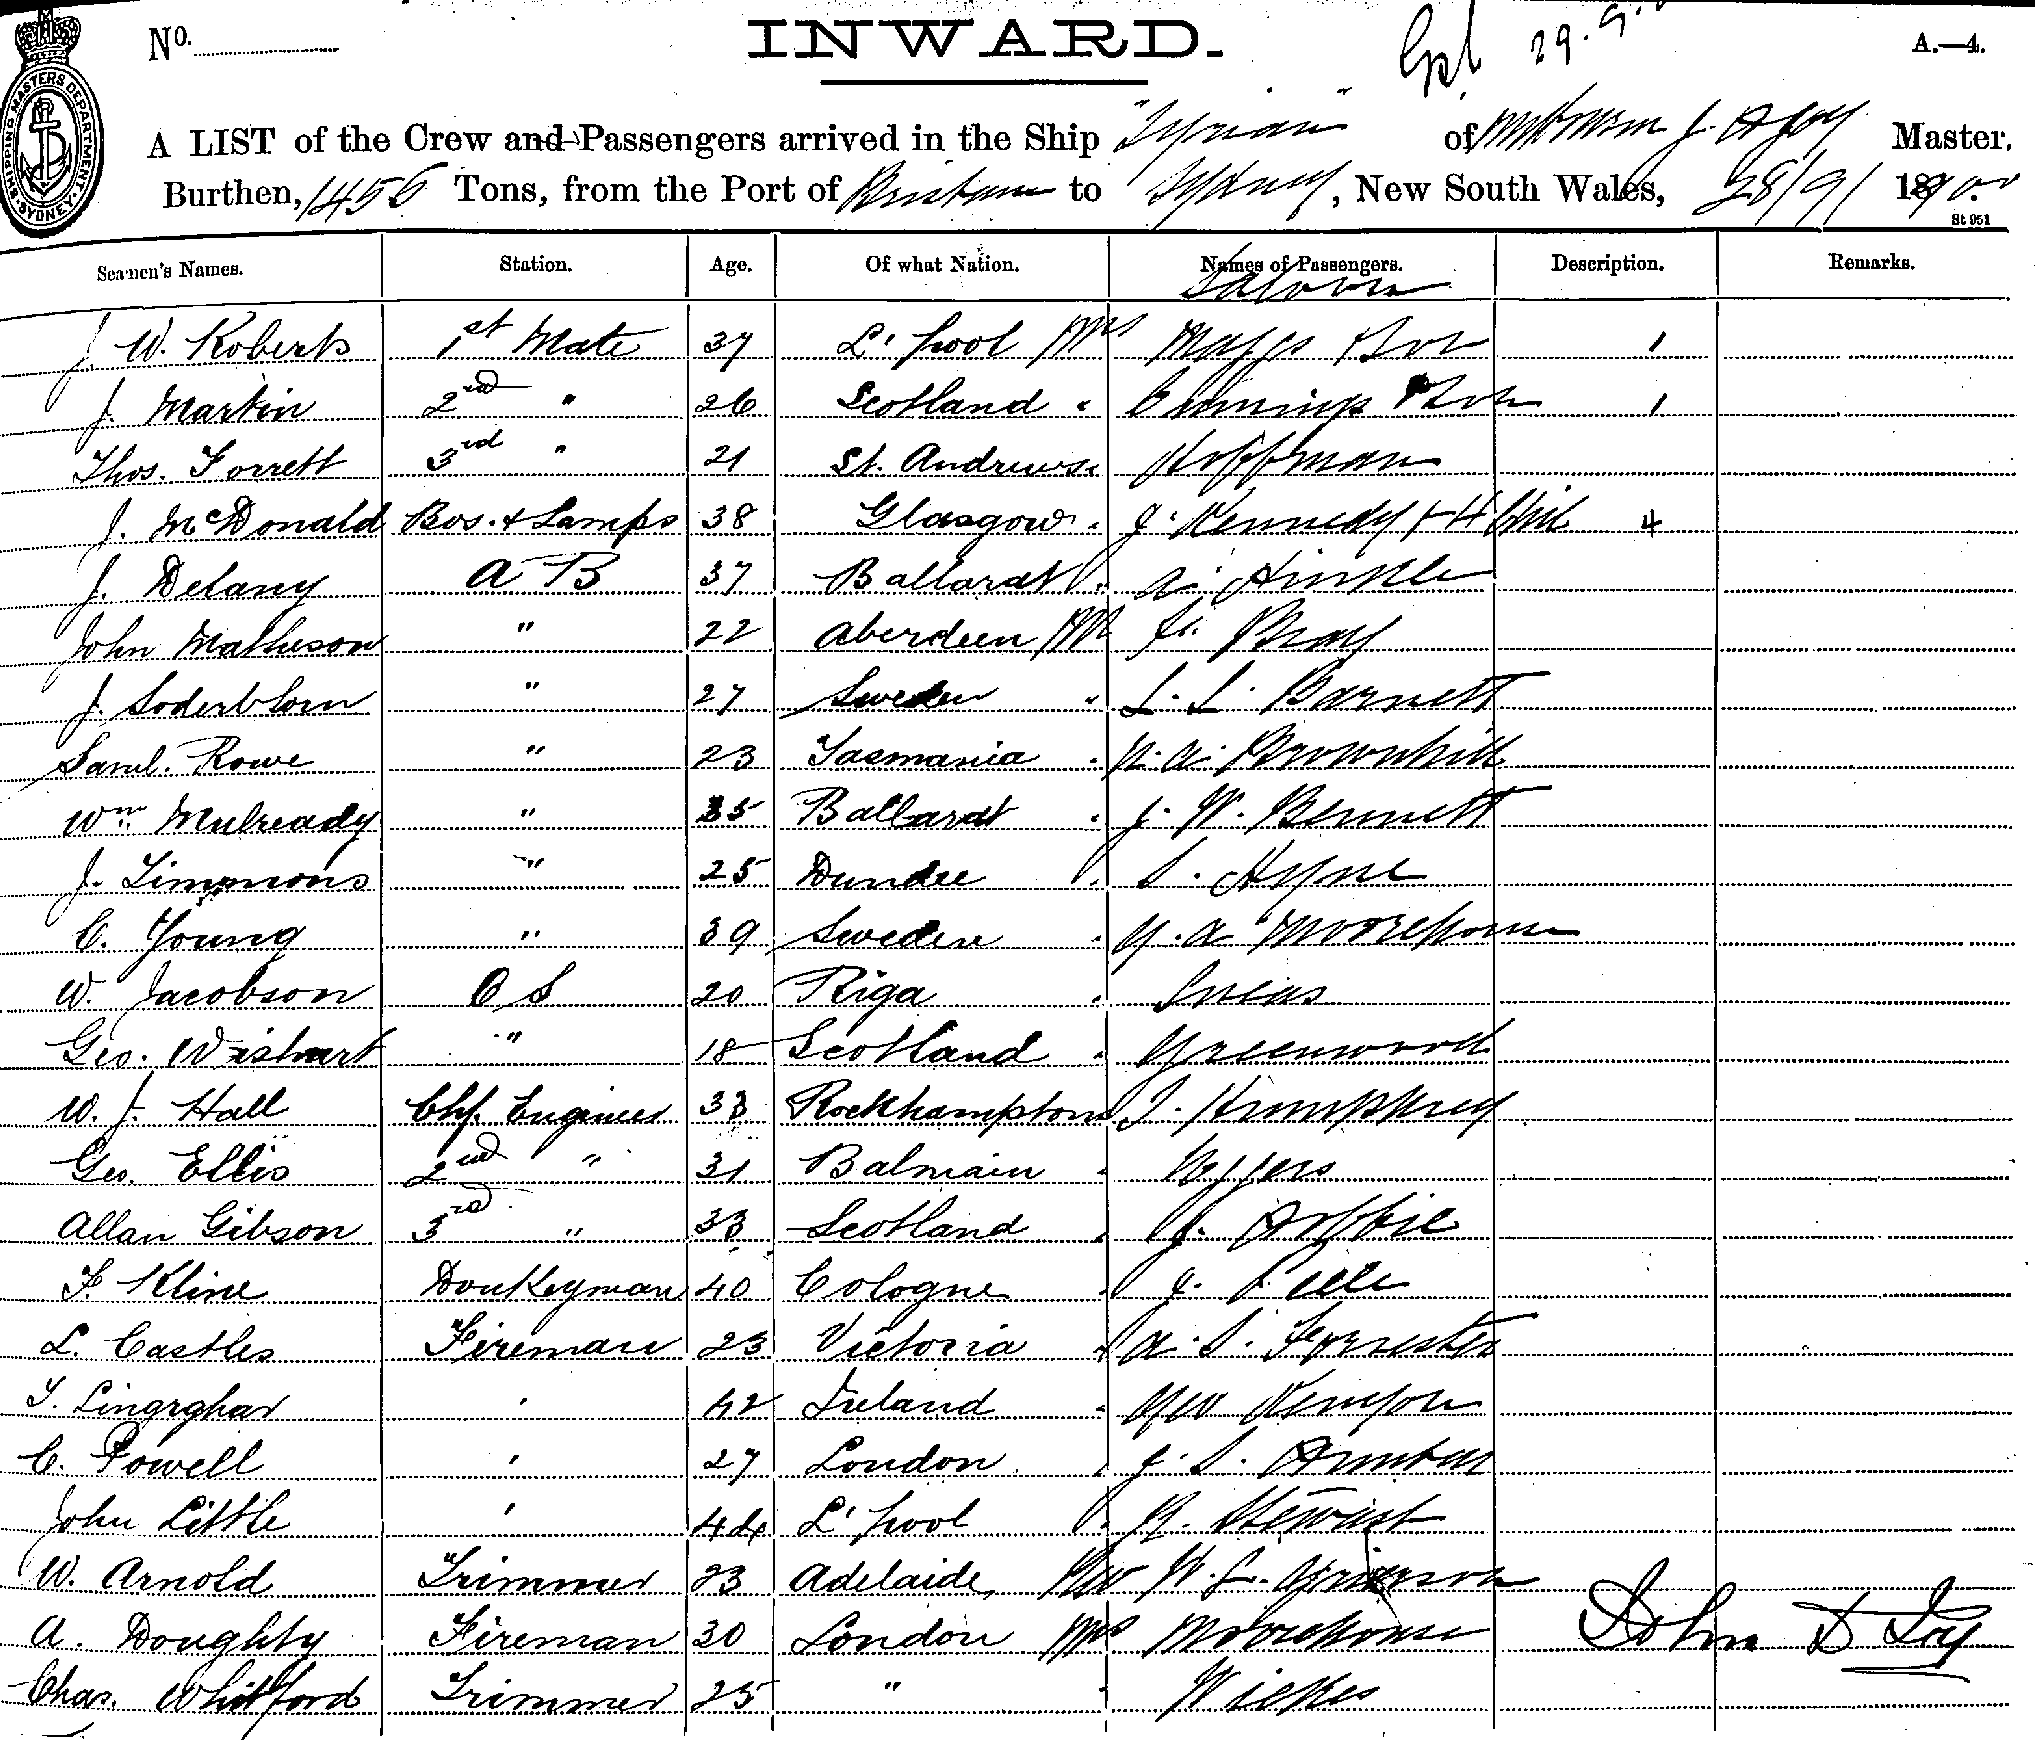 No. INWARD. 29.9. A.—4.
SHIPPING MASTERS DEPARTMENT SYDNEY
A LIST of the Crew and Passengers arrived in the Ship "Tyrian" of Master,
Burthen, 1456 Tons, from the Port of Brisbane to Sydney, New South Wales, 28/9/ 1900
St 951
Seamen's Names. Station. Age. Of what Nation. Names of Passengers. Description. Remarks.
Saloon
J. W. Roberts 1st Mate 37 L'pool Mrs Son 1
J. Martin 2nd " 26 Scotland " 1
Thos. Forrett 3rd " 21 St. Andrews " Hoffman
J. McDonald Bos. & Lamps 38 Glasgow " J. Kennedy & 4 4
J. Delany A B 37 Ballarat " A.
John Matheson " 22 Aberdeen Mr Bray
J. Soderblom " 27 Sweden " L. L. Barnett
Saml. Rowe " 23 Tasmania " Brownhill
Wm Mulready " 35 Ballarat " J. W. Bennett
J. Timmons " 25 Dundee " S. Hyne
C. Young " 39 Sweden " G. A Moorehouse
W. Jacobson O S 20 Riga "
Geo. Wishart " 18 Scotland " Greenwood
W. J. Hall Chf. Engineer 33 Rockhampton J. Humphrey
Geo. Ellis 2nd " 31 Balmain "
Allan Gibson 3rd " 33 Scotland " J.
F. Kline Donkeyman 40 Cologne " J.
L. Castles Fireman 23 Victoria " A. S. Forrester
T. Lingrghar ' 42 Ireland " Geo Kenyon
C. Powell ' 27 London " J. S.
John Little ' 44 L'pool " Stewart
W. Arnold Trimmer 23 Adelaide Rev W. L. Grierson
A. Doughty Fireman 30 London Mrs Moorehouse
John D Joy
Chas. Whitford Trimmer 25 " " Wilkes